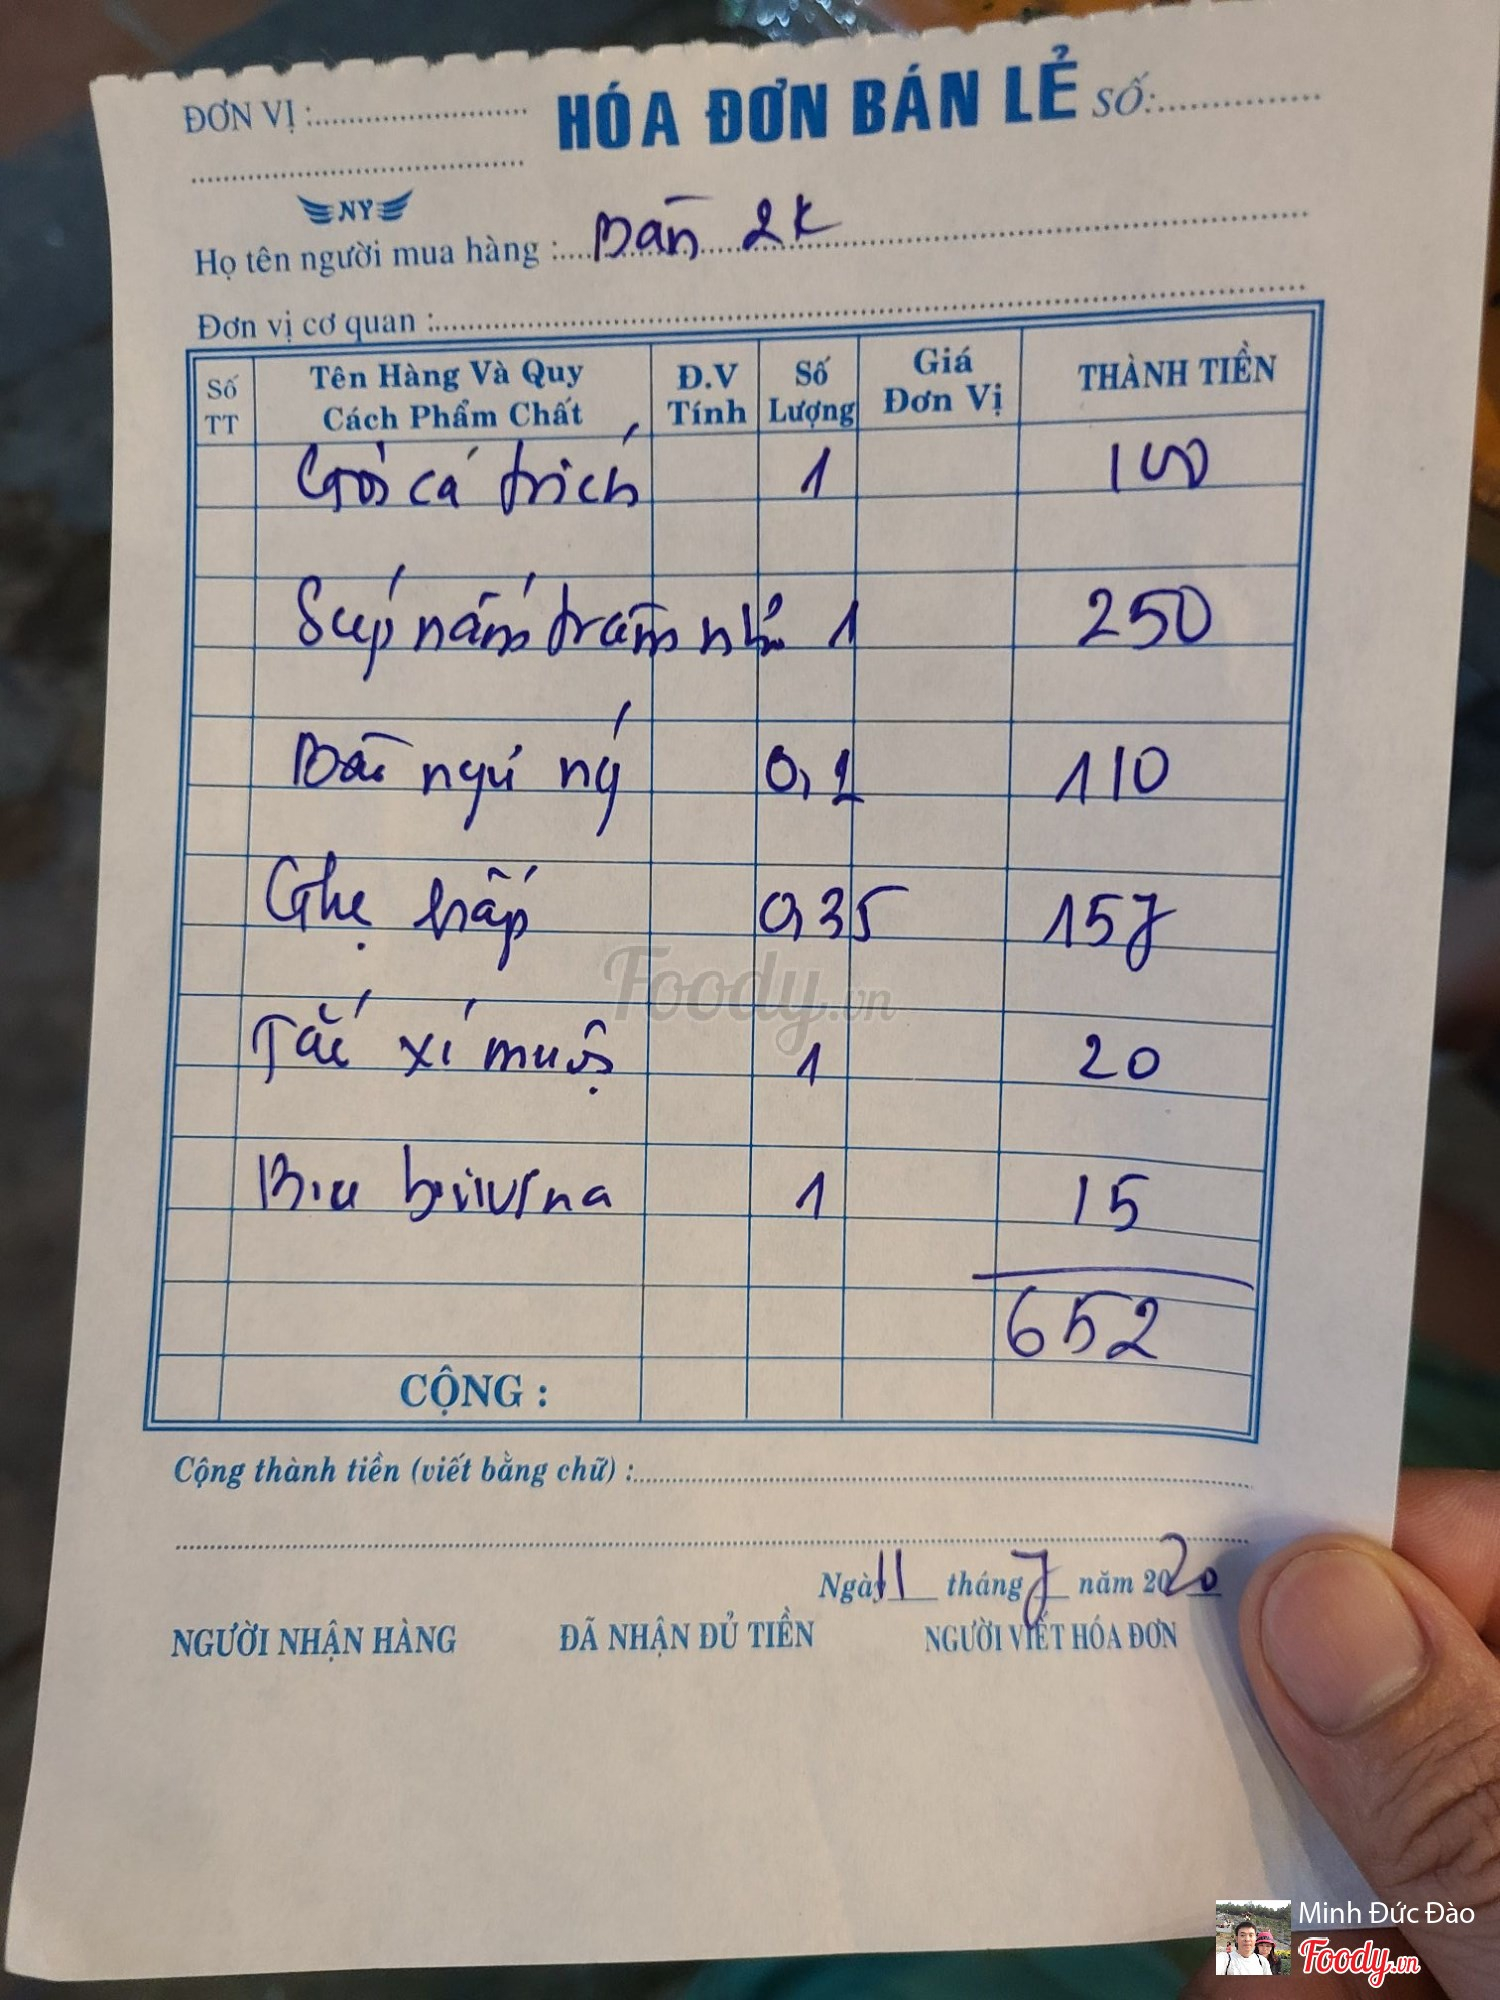 ĐƠN VỊ :
HÓA ĐƠN BÁN LẺ
SỐ:
NY
Họ tên người mua hàng : Bàn 2K
Đơn vị cơ quan :
Số TT Tên Hàng Và Quy Cách Phẩm Chất Đ.V Tính Số Lượng Giá Đơn Vị THÀNH TIỀN
Gỏi cá trích 1 100
Súp nấm tràm nhỏ 1 250
Bào ngư ný 0,2 110
Ghẹ hấp 0,35 157
Tắc xí muội 1 20
Bia 1 15
652
CỘNG :
Cộng thành tiền (viết bằng chữ) :
Ngày 11 tháng 7 năm 2020
NGƯỜI NHẬN HÀNG ĐÃ NHẬN ĐỦ TIỀN NGƯỜI VIẾT HÓA ĐƠN
Foody.vn
Minh Đức Đào
Foody.vn